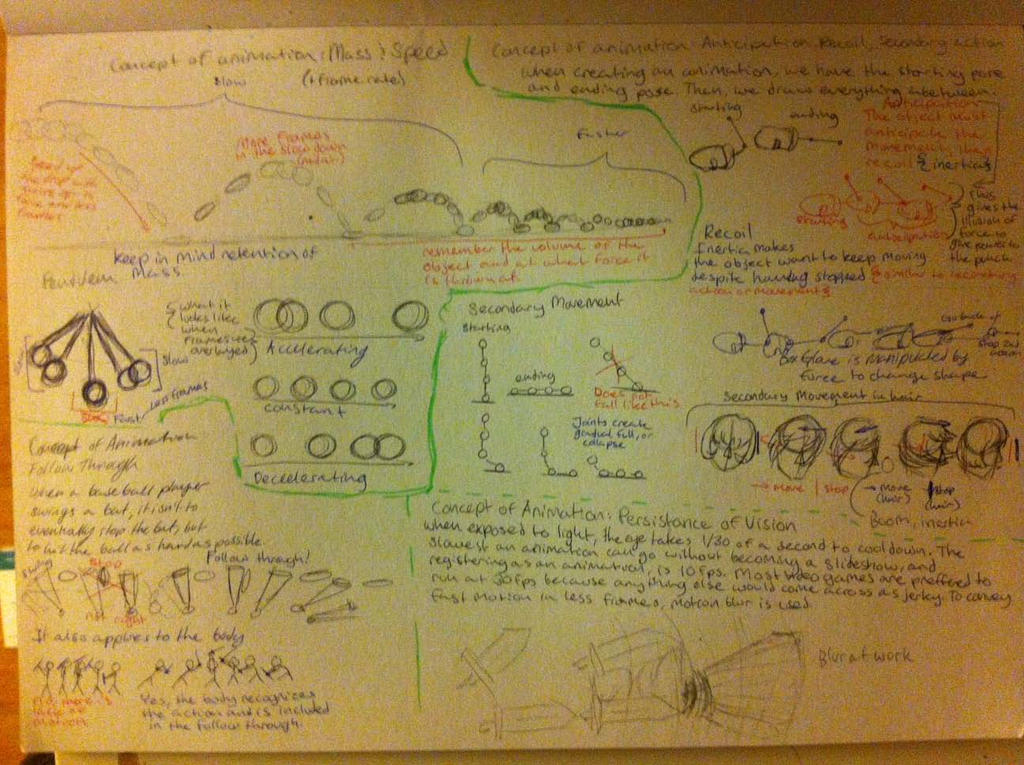 Concept of animation: Mass & Speed
(+ frame rate)
Slow
More frames
in the slow down
Faster
keep in mind retention of
Mass.
remember the volume of the
object and at what force it
is thrown at.
Pendulum
Slow
Fast
Less frames
{what it
looks like
when
frames
overlayed}
Accelerating
constant
Deccelerating
Concept of Animation
Follow Through
When a baseball player
swings a bat, it isn't to
eventually stop the bat, but
to hit the ball as hard as possible.
Swing
Stop
not right
Follow through!
It also applies to the body
Yes, the body recognizes
the action and is included
in the follow through.
Concept of animation: Anticipation, Recoil, Secondary action
When creating an animation, we have the starting pose
and ending pose. Then, we draw everything inbetween.
starting
ending
Anticipation
The object must
anticipate the
movement, then
recoil {inertia}
starting
anticipation
This
gives the
illusion of
force to
give power to
the punch
Recoil
Inertia makes
the object want to keep moving
despite having stopped {similar to secondary
action or movement}
Glove is manipulated by
force to change shape
Secondary Movement
Starting
ending
Does not
fall like this
Joints create
gradual fall, or
collapse
Secondary Movement in hair
→ Move | Stop
→ move (hair)
stop (hair)
Boom, inertia
Concept of Animation: Persistance of Vision
When exposed to light, the eye takes 1/30 of a second to cool down. The
slowest an animation can go without becoming a slideshow, and
registering as an animation, is 10 fps. Most video games are preffered to
run at 30 fps because anything else would come across as jerky. To convey
fast motion in less frames, motion blur is used.
Blur at work